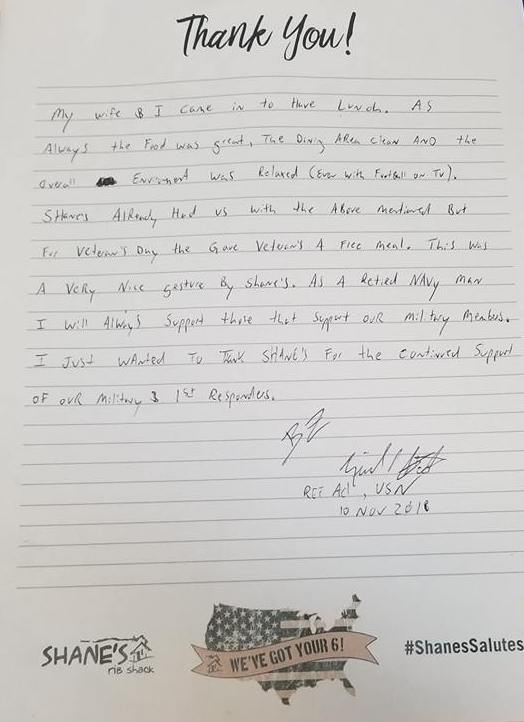 Thank You!
My wife & I came in to Have Lunch. AS
Always the Food was great, The Dining Area clean AND the
overall Enviroment was Relaxed (Even with Football on TV).
SHANE'S Already Had us with the Above mentioned But
For Veteran's Day the Gave Veteran's A Free Meal. This was
A Very Nice gesture By Shane's. As A Retied NAvy man
I will Always Support those that Support our Military Members.
I Just wAnted To Tank SHANE'S For the continued Support
OF our Military & 1st Responders.
RET , USN
10 NOV 2018
SHANE'S
rib shack
WE'VE GOT YOUR 6!
#ShanesSalutes